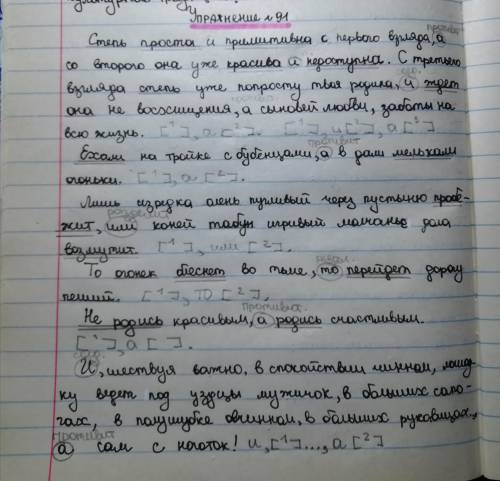 Упражнение №91
противит
Степь проста и примитивна с первого взгляда, а
со второго она уже красива и недоступна. С третьего
соед.
взгляда степь уже попросту твоя родина, и ждет
она не восхищения, а сыновей любви, заботы на
всю жизнь. [1], а [2]. [1], и [2], а [3]
противит
Ехали на тройке с бубенцами, а в дали мелькали
огоньки. [1], а [2].
Лишь изредка олень пугливый через пустыню пробе-
разделит
жит, или коней табун игривый молчанье дола
возмутит. [1], или [2].
То огонек блеснет во тьме, то перейдет дорогу
пеший. [1], то [2].
Противит.
Не родись красивым, а родись счастливым.
[1], а [ ].
соед.
И, шествуя важно, в спокойствии чинном, лошад-
ку ведет под уздцы мужичок, в больших сапо-
гах, в полушубке овчинном, в больших рукавицах..,
Противит
а сам с ноготок! И, [1]..., а [2]